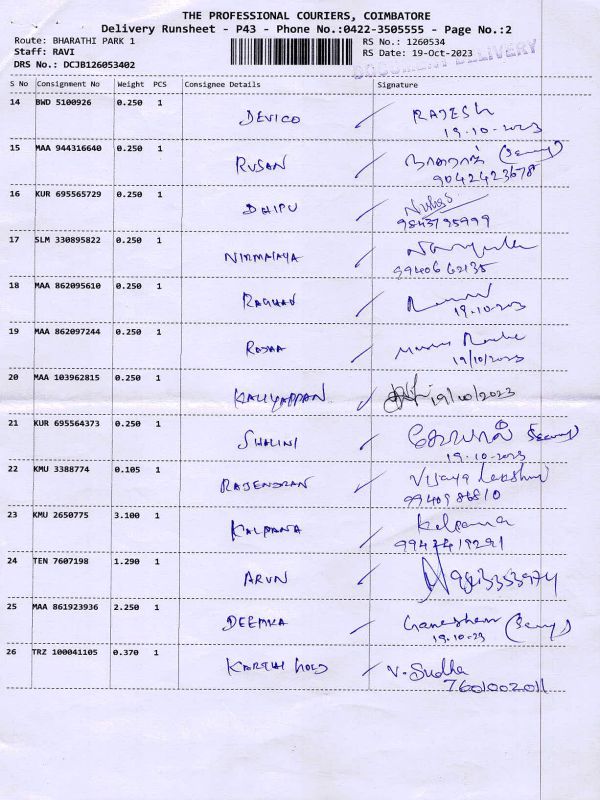 THE PROFESSIONAL COURIERS, COIMBATORE
Delivery Runsheet - P43 - Phone No.:0422-3505555 - Page No.:2
Route: BHARATHI PARK 1 RS No.: 1260534
Staff: RAVI RS Date: 19-Oct-2023
DRS No.: DCJB126053402 DOCUMENT DELIVERY
S No Consignment No Weight PCS Consignee Details Signature
14 BWD 5100926 0.250 1 DEVICO RAJESH
19.10.2023
15 MAA 944316640 0.250 1 RUSAN
9042423678
16 KUR 695565729 0.250 1 DHIPU
9843795999
17 SLM 330895822 0.250 1 NIRMALAYA
9940662135
18 MAA 862095610 0.250 1 RAGHAV
19.10.2023
19 MAA 862097244 0.250 1 ROJHA
19/10/2023
20 MAA 103962815 0.250 1 KALIYAPPAN 19/10/2023
21 KUR 695564373 0.250 1 SHALINI
19.10.2023
22 KMU 3388774 0.105 1 RAJENDRAN Vijaya Lakshmi
9940986810
23 KMU 2650775 3.100 1 KALPANA Kalpana
24 TEN 7607198 1.290 1 ARUN
25 MAA 861923936 2.250 1 DEEPIKA Ganeshan
19.10.23
26 TRZ 100041105 0.370 1 V. Sudha
7601002011